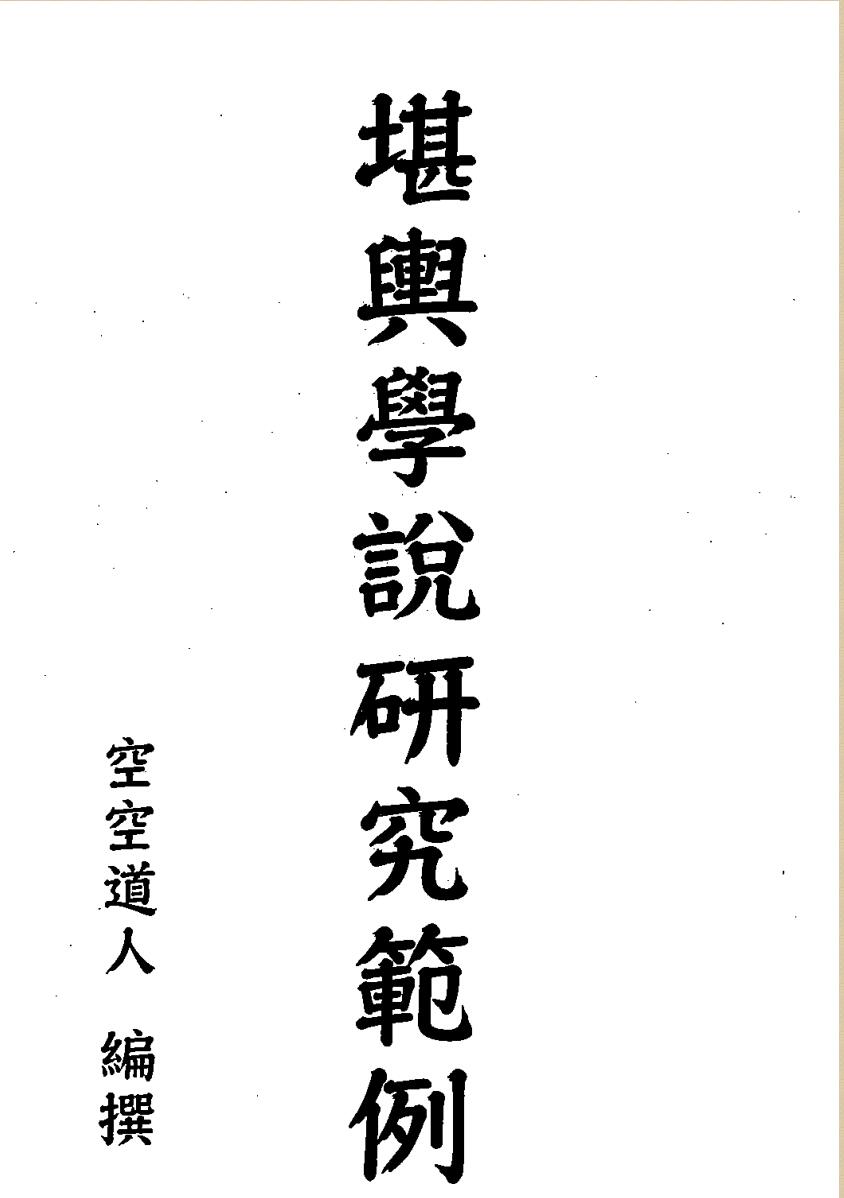 堪輿學說研究範例
空空道人 編撰